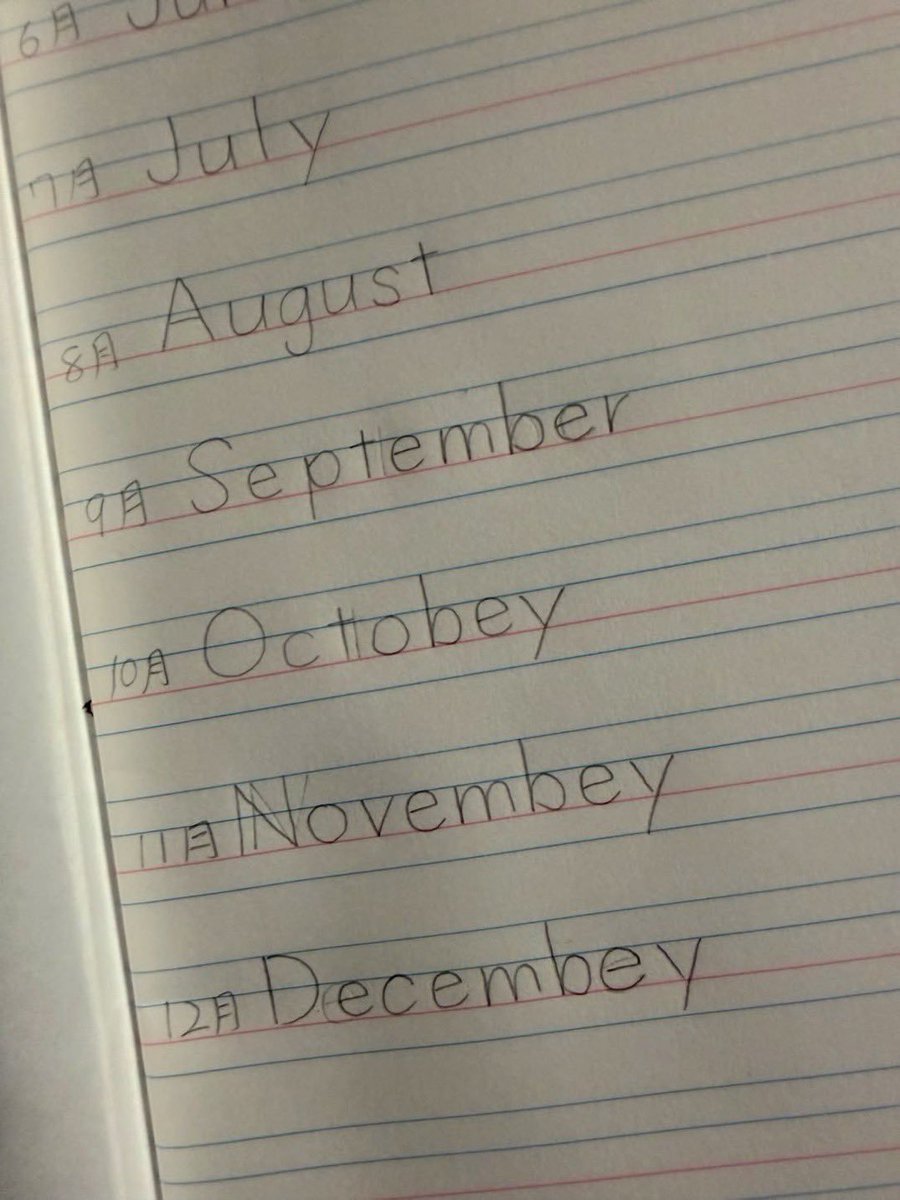 6月 Ju
7月 July
8月 August
9月 September
10月 Octobey
11月 Novembey
12月 Decembey